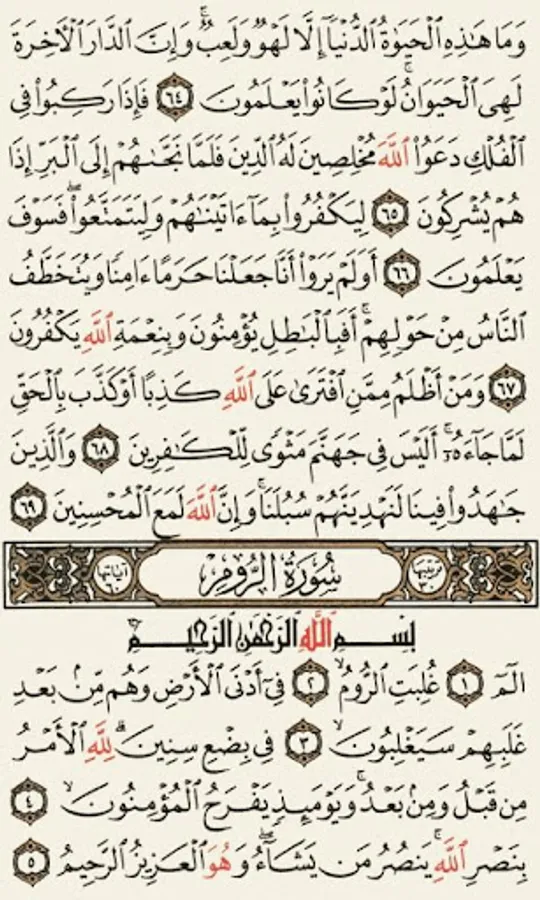 وَمَا هَٰذِهِ ٱلْحَيَوٰةُ ٱلدُّنْيَآ إِلَّا لَهْوٌ وَلَعِبٌ ۚ وَإِنَّ ٱلدَّارَ ٱلْأَخِرَةَ
لَهِىَ ٱلْحَيَوَانُ ۚ لَوْ كَانُوا۟ يَعْلَمُونَ ٦٤ فَإِذَا رَكِبُوا۟ فِى
ٱلْفُلْكِ دَعَوُا۟ ٱللَّهَ مُخْلِصِينَ لَهُ ٱلدِّينَ فَلَمَّا نَجَّىٰهُمْ إِلَى ٱلْبَرِّ إِذَا
هُمْ يُشْرِكُونَ ٦٥ لِيَكْفُرُوا۟ بِمَآ ءَاتَيْنَٰهُمْ وَلِيَتَمَتَّعُوا۟ ۖ فَسَوْفَ
يَعْلَمُونَ ٦٦ أَوَلَمْ يَرَوْا۟ أَنَّا جَعَلْنَا حَرَمًا ءَامِنًا وَيُتَخَطَّفُ
ٱلنَّاسُ مِنْ حَوْلِهِمْ ۚ أَفَبِٱلْبَٰطِلِ يُؤْمِنُونَ وَبِنِعْمَةِ ٱللَّهِ يَكْفُرُونَ
٦٧ وَمَنْ أَظْلَمُ مِمَّنِ ٱفْتَرَىٰ عَلَى ٱللَّهِ كَذِبًا أَوْ كَذَّبَ بِٱلْحَقِّ
لَمَّا جَآءَهُۥٓ ۚ أَلَيْسَ فِى جَهَنَّمَ مَثْوًى لِّلْكَٰفِرِينَ ٦٨ وَٱلَّذِينَ
جَٰهَدُوا۟ فِينَا لَنَهْدِيَنَّهُمْ سُبُلَنَا ۚ وَإِنَّ ٱللَّهَ لَمَعَ ٱلْمُحْسِنِينَ ٦٩
ترتيبها ٣٠ سُورَةُ الرُّومِ آياتها ٦٠
بِسْمِ ٱللَّهِ ٱلرَّحْمَٰنِ ٱلرَّحِيمِ
الٓمٓ ١ غُلِبَتِ ٱلرُّومُ ۙ ٢ فِىٓ أَدْنَى ٱلْأَرْضِ وَهُم مِّنۢ بَعْدِ
غَلَبِهِمْ سَيَغْلِبُونَ ۙ ٣ فِى بِضْعِ سِنِينَ ۗ لِلَّهِ ٱلْأَمْرُ
مِن قَبْلُ وَمِنۢ بَعْدُ ۚ وَيَوْمَئِذٍ يَفْرَحُ ٱلْمُؤْمِنُونَ ۙ ٤
بِنَصْرِ ٱللَّهِ ۚ يَنصُرُ مَن يَشَآءُ ۖ وَهُوَ ٱلْعَزِيزُ ٱلرَّحِيمُ ٥